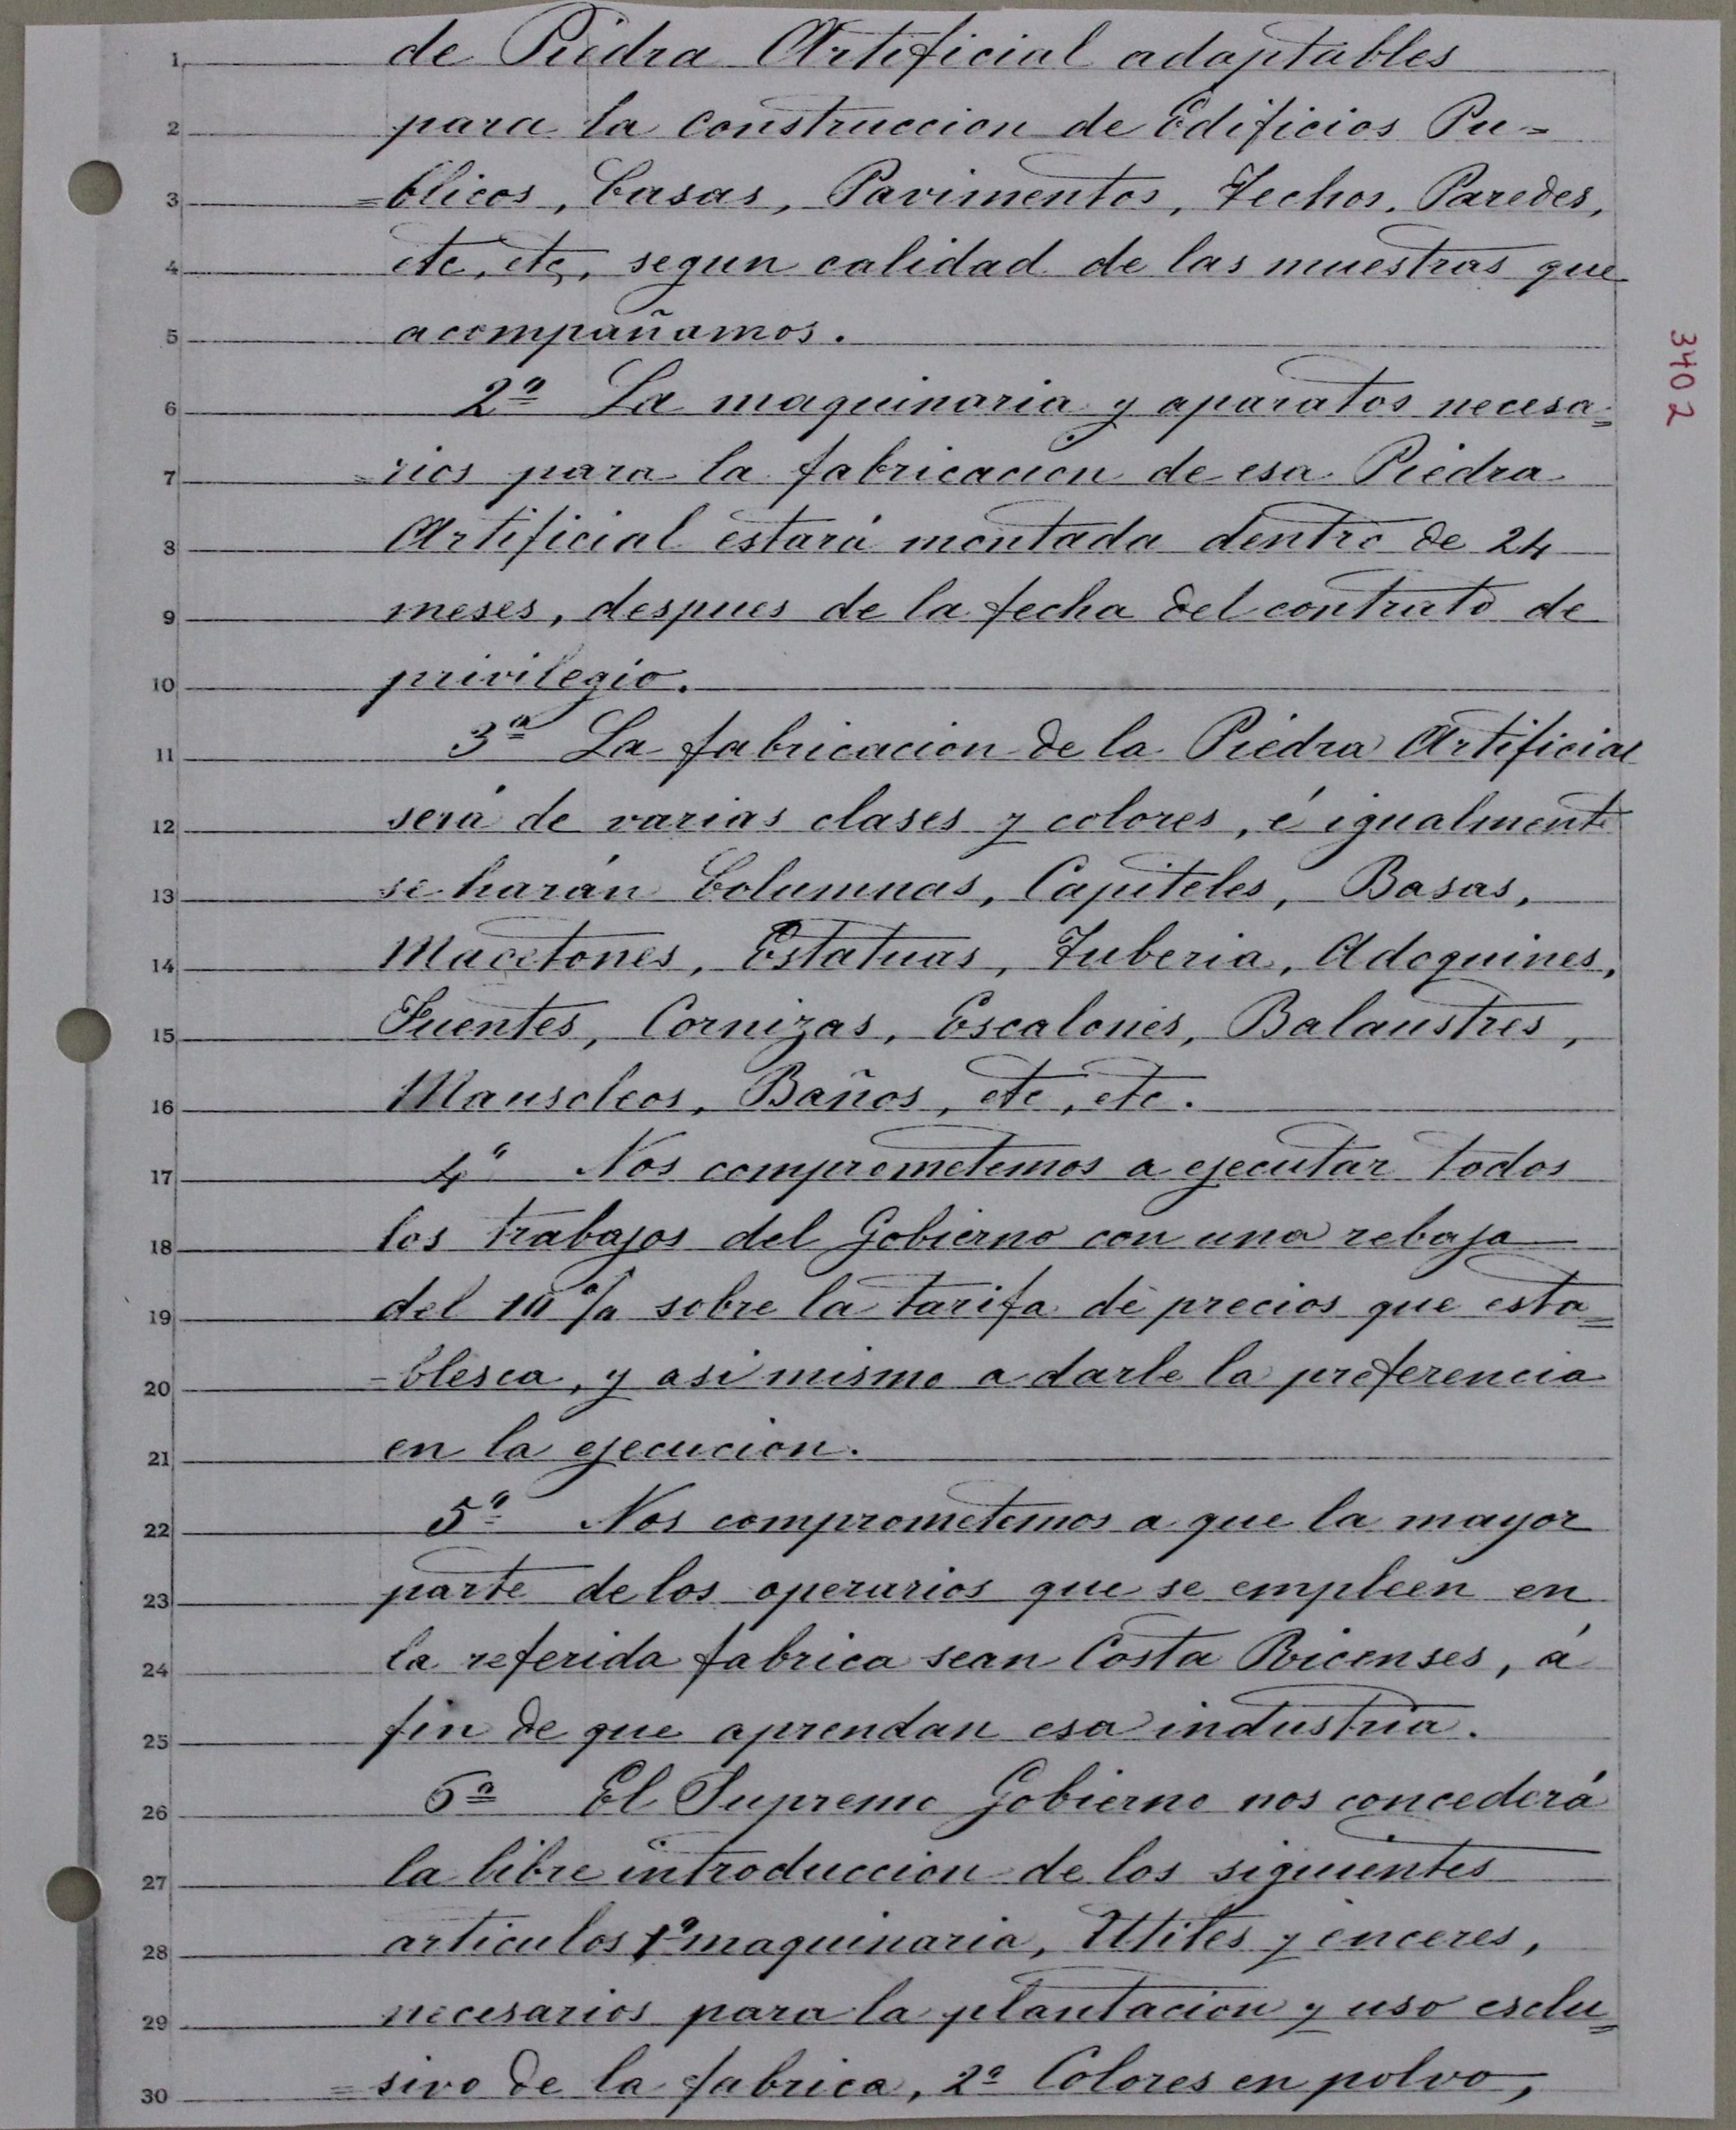 1 de Piedra Artificial adaptables
2 para la construccion de Edificios Pu=
3 =blicos, Casas, Pavimentos, Techos, Paredes,
4 etc, etc, segun calidad de las muestras que
5 acompañamos.
6 2ª La maquinaria y aparatos necesa=
7 =rios para la fabricacion de esa Piedra
8 Artificial estará montada dentro de 24
9 meses, despues de la fecha del contrato de
10 privilegio.
11 3ª La fabricacion de la Piedra Artificial
12 será de varias clases y colores, é igualmente
13 se harán Columnas, Capiteles, Basas,
14 Macetones, Estatuas, Tuberia, Adoquines,
15 Fuentes, Cornizas, Escalones, Balaustres,
16 Mausoleos, Baños, etc, etc.
17 4ª Nos comprometemos a ejecutar todos
18 los trabajos del Gobierno con una rebaja
19 del 10 % sobre la tarifa de precios que esta=
20 =blesca, y asi mismo a darle la preferencia
21 en la ejecucion.
22 5ª Nos comprometemos a que la mayor
23 parte de los operarios que se empleen en
24 la referida fabrica sean Costa Ricenses, á
25 fin de que aprendan esa industria.
26 6ª El Supremo Gobierno nos concederá
27 la libre introduccion de los siguientes
28 articulos 1º maquinaria, Utiles y enceres,
29 necesarios para la plantacion y uso esclu=
30 =sivo de la fabrica, 2º Colores en polvo,
3402